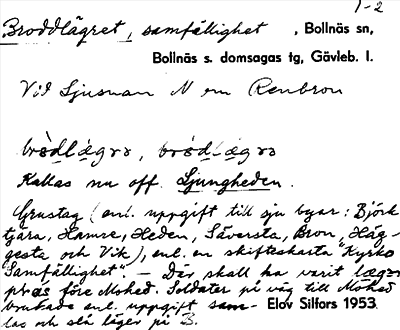 1-2
Broddlägret, samfällighet, Bollnäs sn,
Bollnäs s. domsagas tg, Gävleb. l.
Vid Ljusnan N om Renbron
Kallas nu off. Ljungheden.
Grustag (enl. uppgift till sju byar: Björk
tjära, Hamre, Heden, Säversta, Bron, Häg-
gesta och Vik), enl. en skifteskarta "Kyrko
Samfällighet". – Där skall ha varit läger
plats före Mohed. Soldater på väg till Mohed
brukade enl. uppgift sam-
las och slå läger på B.
Elov Silfors 1953.